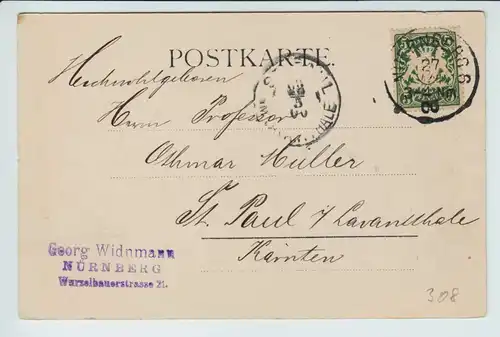 POSTKARTE.
Hochwohlgeboren
Herrn Professor
Othmar Müller
St. Paul i/ Lavantthale
Kärnten
Georg Widnmann
NÜRNBERG
Wurzelbauerstrasse 21.
308